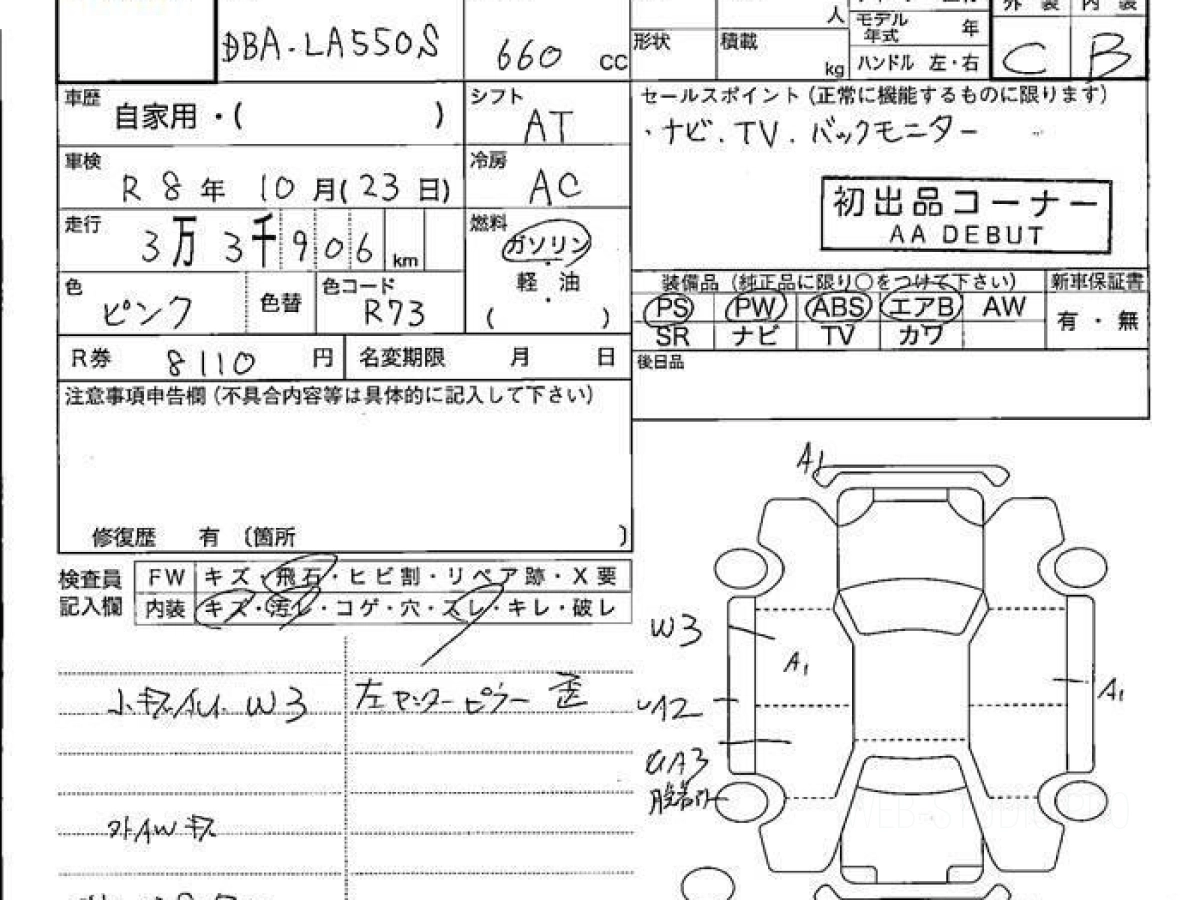 DBA-LA550S
660 cc
人
形状
積載
kg
モデル年式 年
ハンドル 左・右
外装 内装
C B
車歴
自家用・( )
シフト
AT
車検
R 8 年 10 月(23 日)
冷房
AC
走行
3万 3千906 km
燃料
ガソリン
・
軽 油
・
( )
色
ピンク
色替
色コード
R73
R券 8110 円
名変期限 月 日
セールスポイント(正常に機能するものに限ります)
・ナビ.TV.バックモニター
初出品コーナー
AA DEBUT
装備品(純正品に限り○をつけて下さい)
新車保証書
PS PW ABS エアB AW
有・無
SR ナビ TV カワ
後日品
注意事項申告欄(不具合内容等は具体的に記入して下さい)
修復歴 有〔箇所 〕
検査員
記入欄
FW キズ・飛石・ヒビ割・リペア跡・X要
内装 キズ・汚レ・コゲ・穴・スレ・キレ・破レ
W3
左センターピラー 歪
外AWキズ
A1
W3
A1
A1
A2